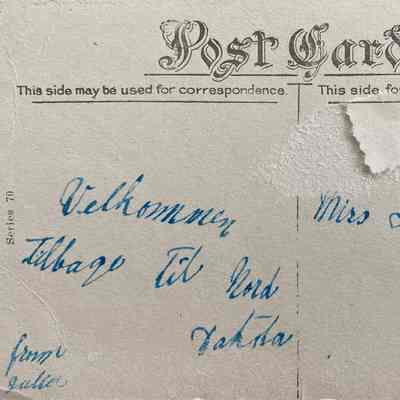 Post Card
This side may be used for correspondence.
This side fo
Series 70
Velkommen
tilbage til Nord
Dakota
from
Mrs